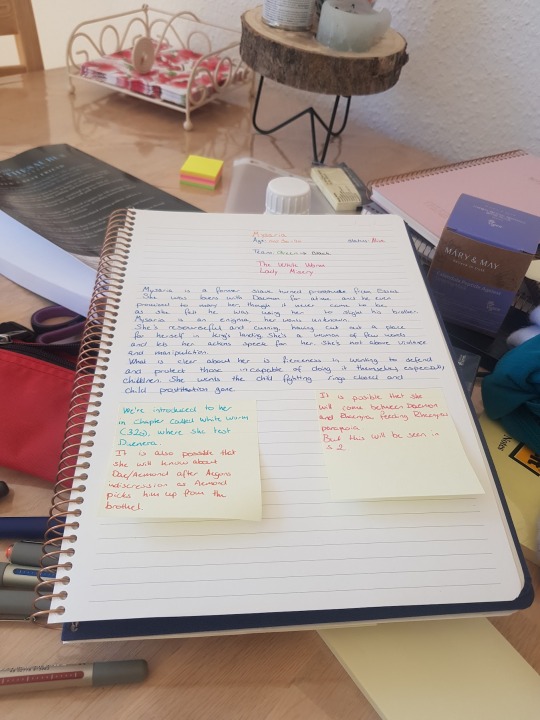 Mysaria
Age:
Status: Alive
Team: Green or Black
The White Worm
Lady Misery
Mysaria is a former slave turned prostitute from
She was lovers with Daemon for a time and he even
promised to marry her, though it never came to be,
as she felt he was using her to slight his brother.
Mysaria is an enigma, her words unknown.
She's resourceful and cuning, having cut out a place
for herself in King's landing. She's a woman of few words
and lets her actions speak for her. She's not above violence
and manipulation.
What is clear about her is fierceness in wanting to defend
and protect those incapable of doing it themselves, especially
children. She wants the child fighting rings closed and
child prostitution gone.
We're introduced to her
in chapter called White Worm
(320), where she test
Daenera.
It is also possible that
she will know about
Dae/Aemond after Aegons
indiscression as Aemond
picks him up from the
brothel.
It is posible that she
will come between Daemon
and Rhaenyra feeding Rhaenyras
paranoia.
But this will be seen in
s 2.
MARY & MAY
Notes